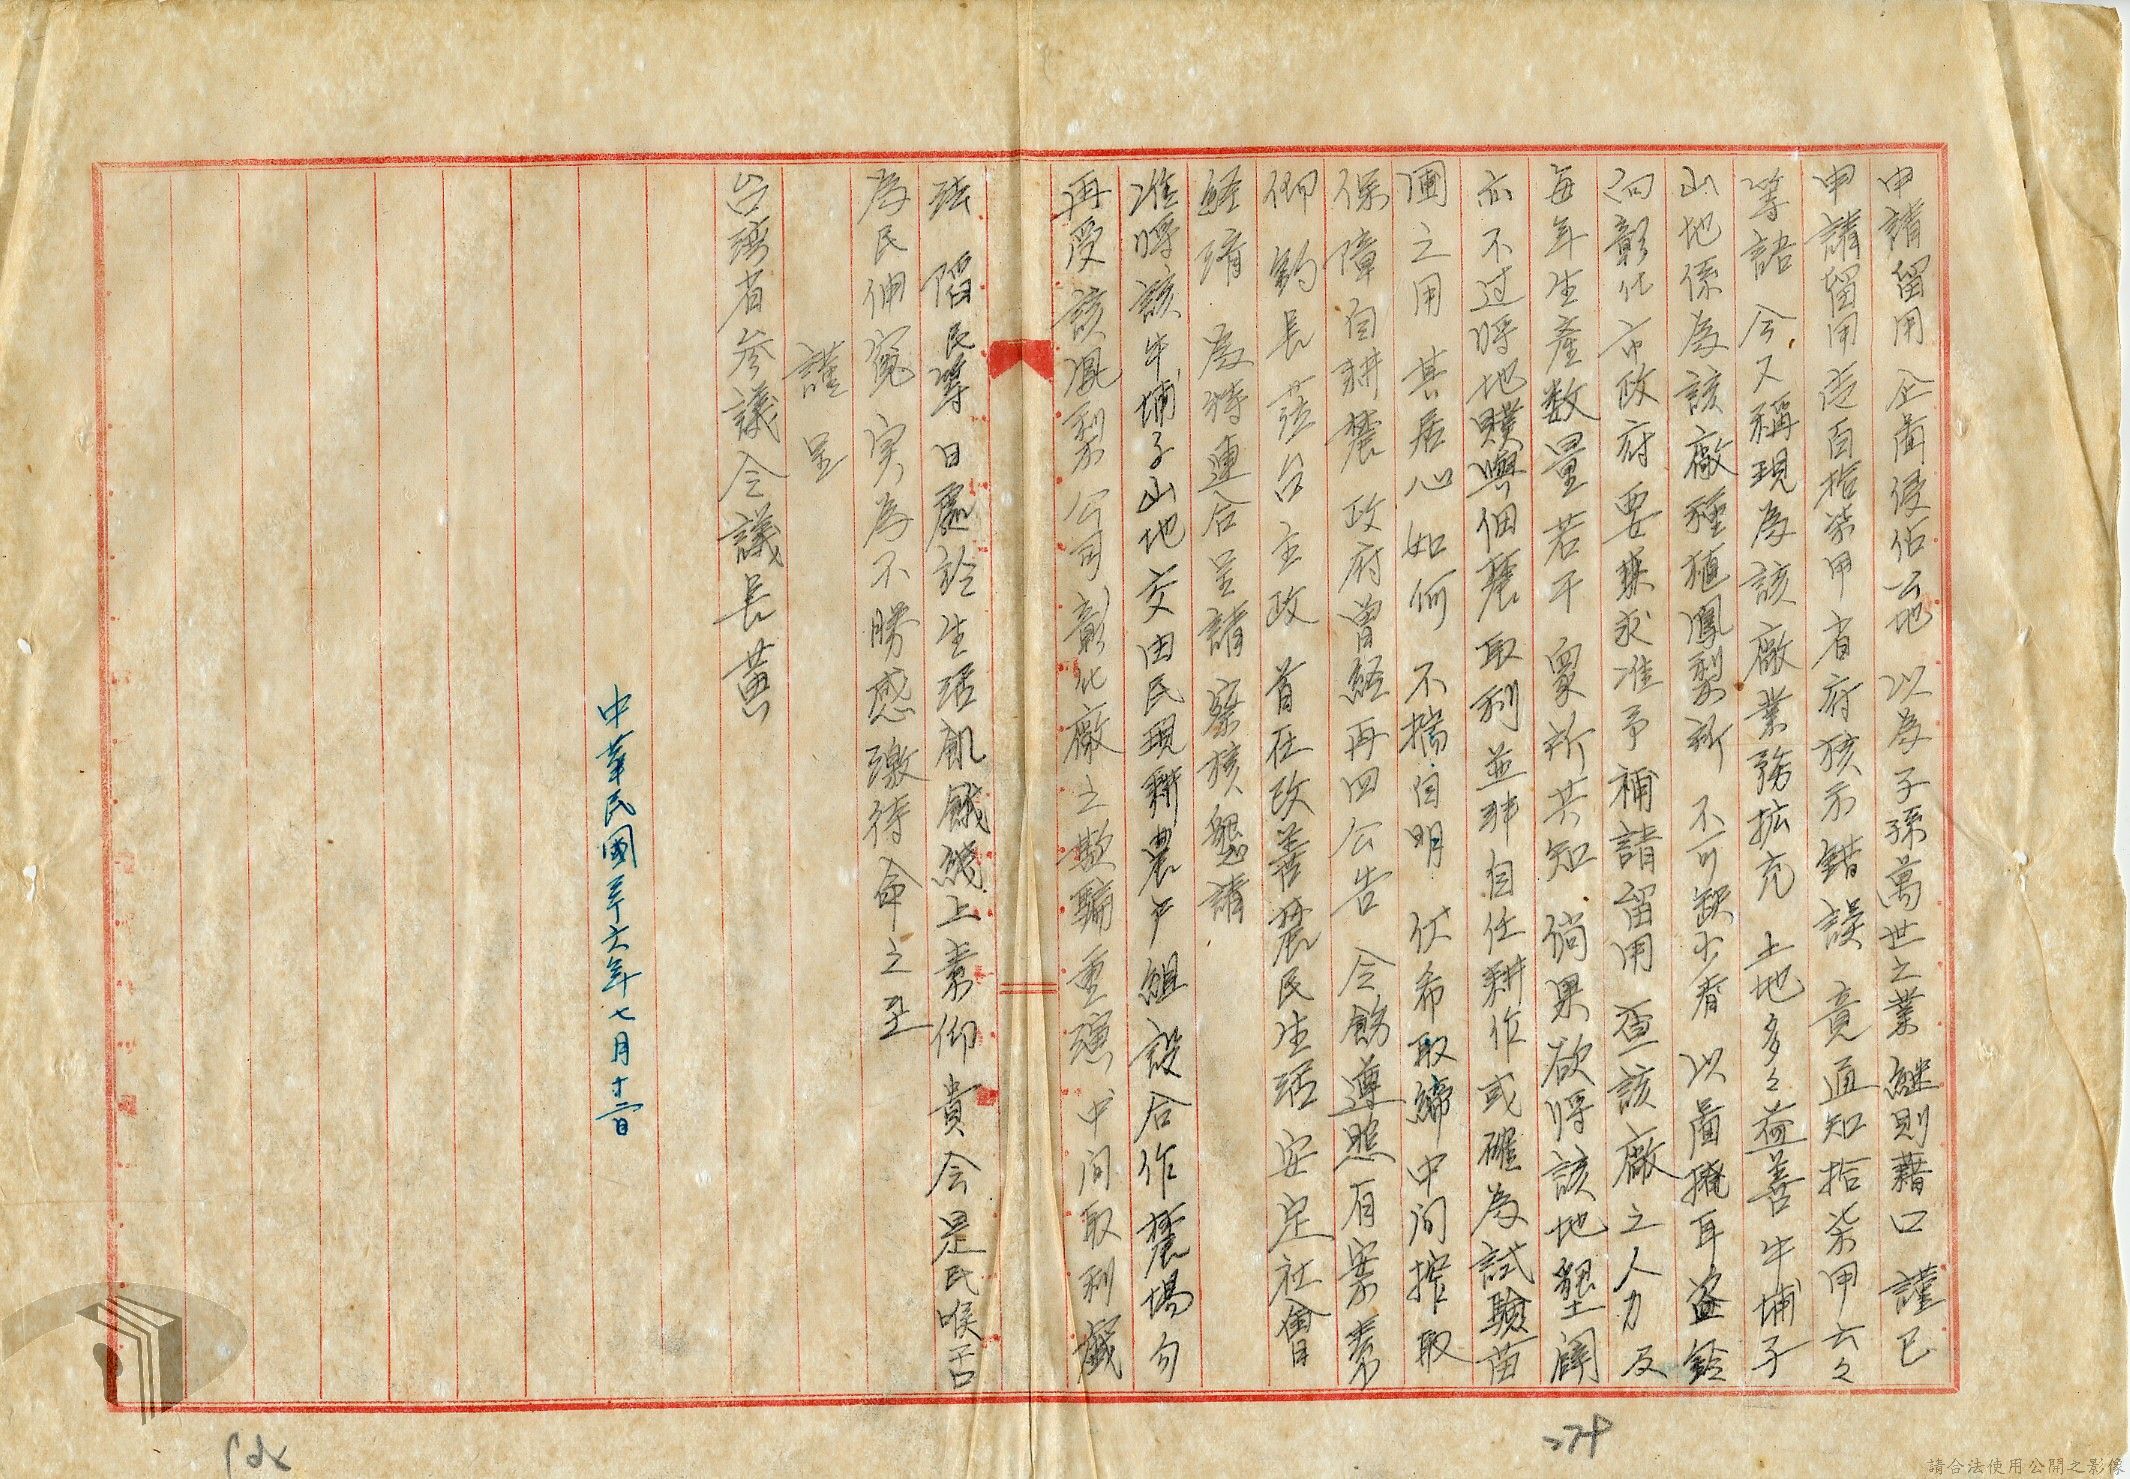 申請留用 企啚侵佔公地 以為子孫萬世之業 継則藉口 謹已
申請留用 壱百拾柒甲 省府核示錯誤 竟通知拾柒甲云々
等語 今又稱現為該廠業務拡充 土地多多益善 牛埔子
山地係為該廠種植鳳梨所 不可缺少者 以啚掩耳盜鈴
向彰化市政府要求准予補請留用 查該廠之人力及
每年生產数量若干 眾所共知 倘果欲将該地墾闢
亦不过将地贌與佃農取利 並非自任耕作 或確為試驗苗
圃之用 其居心如何 不揣自明 伏希取締中间搾取
保障自耕農 政府曾経再四公告 令飭遵照有案 素
仰 鈞長蒞台主政 首在改善農民生活 安定社會
経濟 為特連合呈請 察核 懇請
准将該牛埔子山地交由民現耕農户組設合作農場 勿
再受該鳳梨公司彰化廠之欺騙 重演中间取利戲
法 陷民等日處於生活飢餓綫上 素仰 貴会是民喉舌
為民伸寃 实為不勝感激待命之至
謹 呈
台湾省参議会議長黃
中華民國三十六年七月十二日
274
請合法使用公開之影像